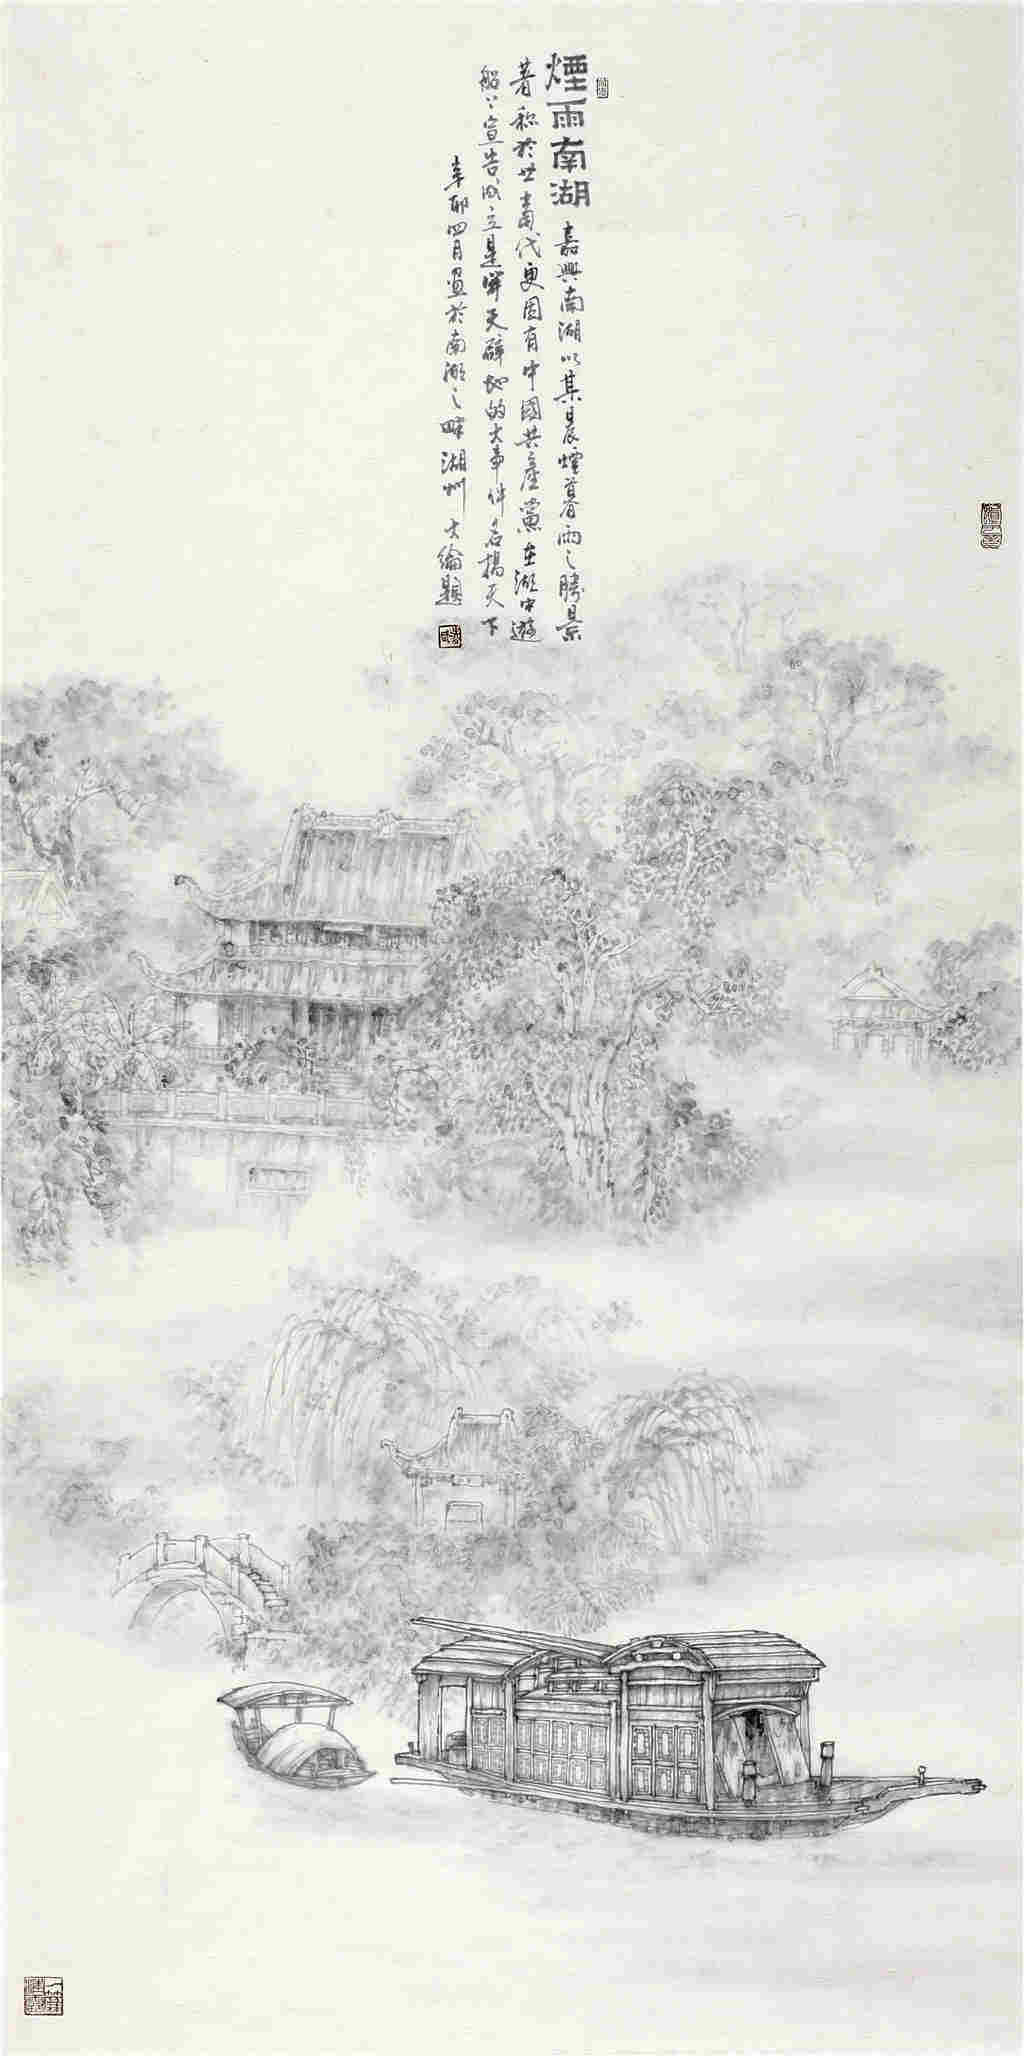 煙雨南湖 嘉興南湖以其晨煙暮雨之勝景
著稱於世 當代更因有中國共產黨在湖中遊
船上宣告成立是開天闢地的大事件名揚天下
辛卯四月畫於南湖之畔湖州大綸題